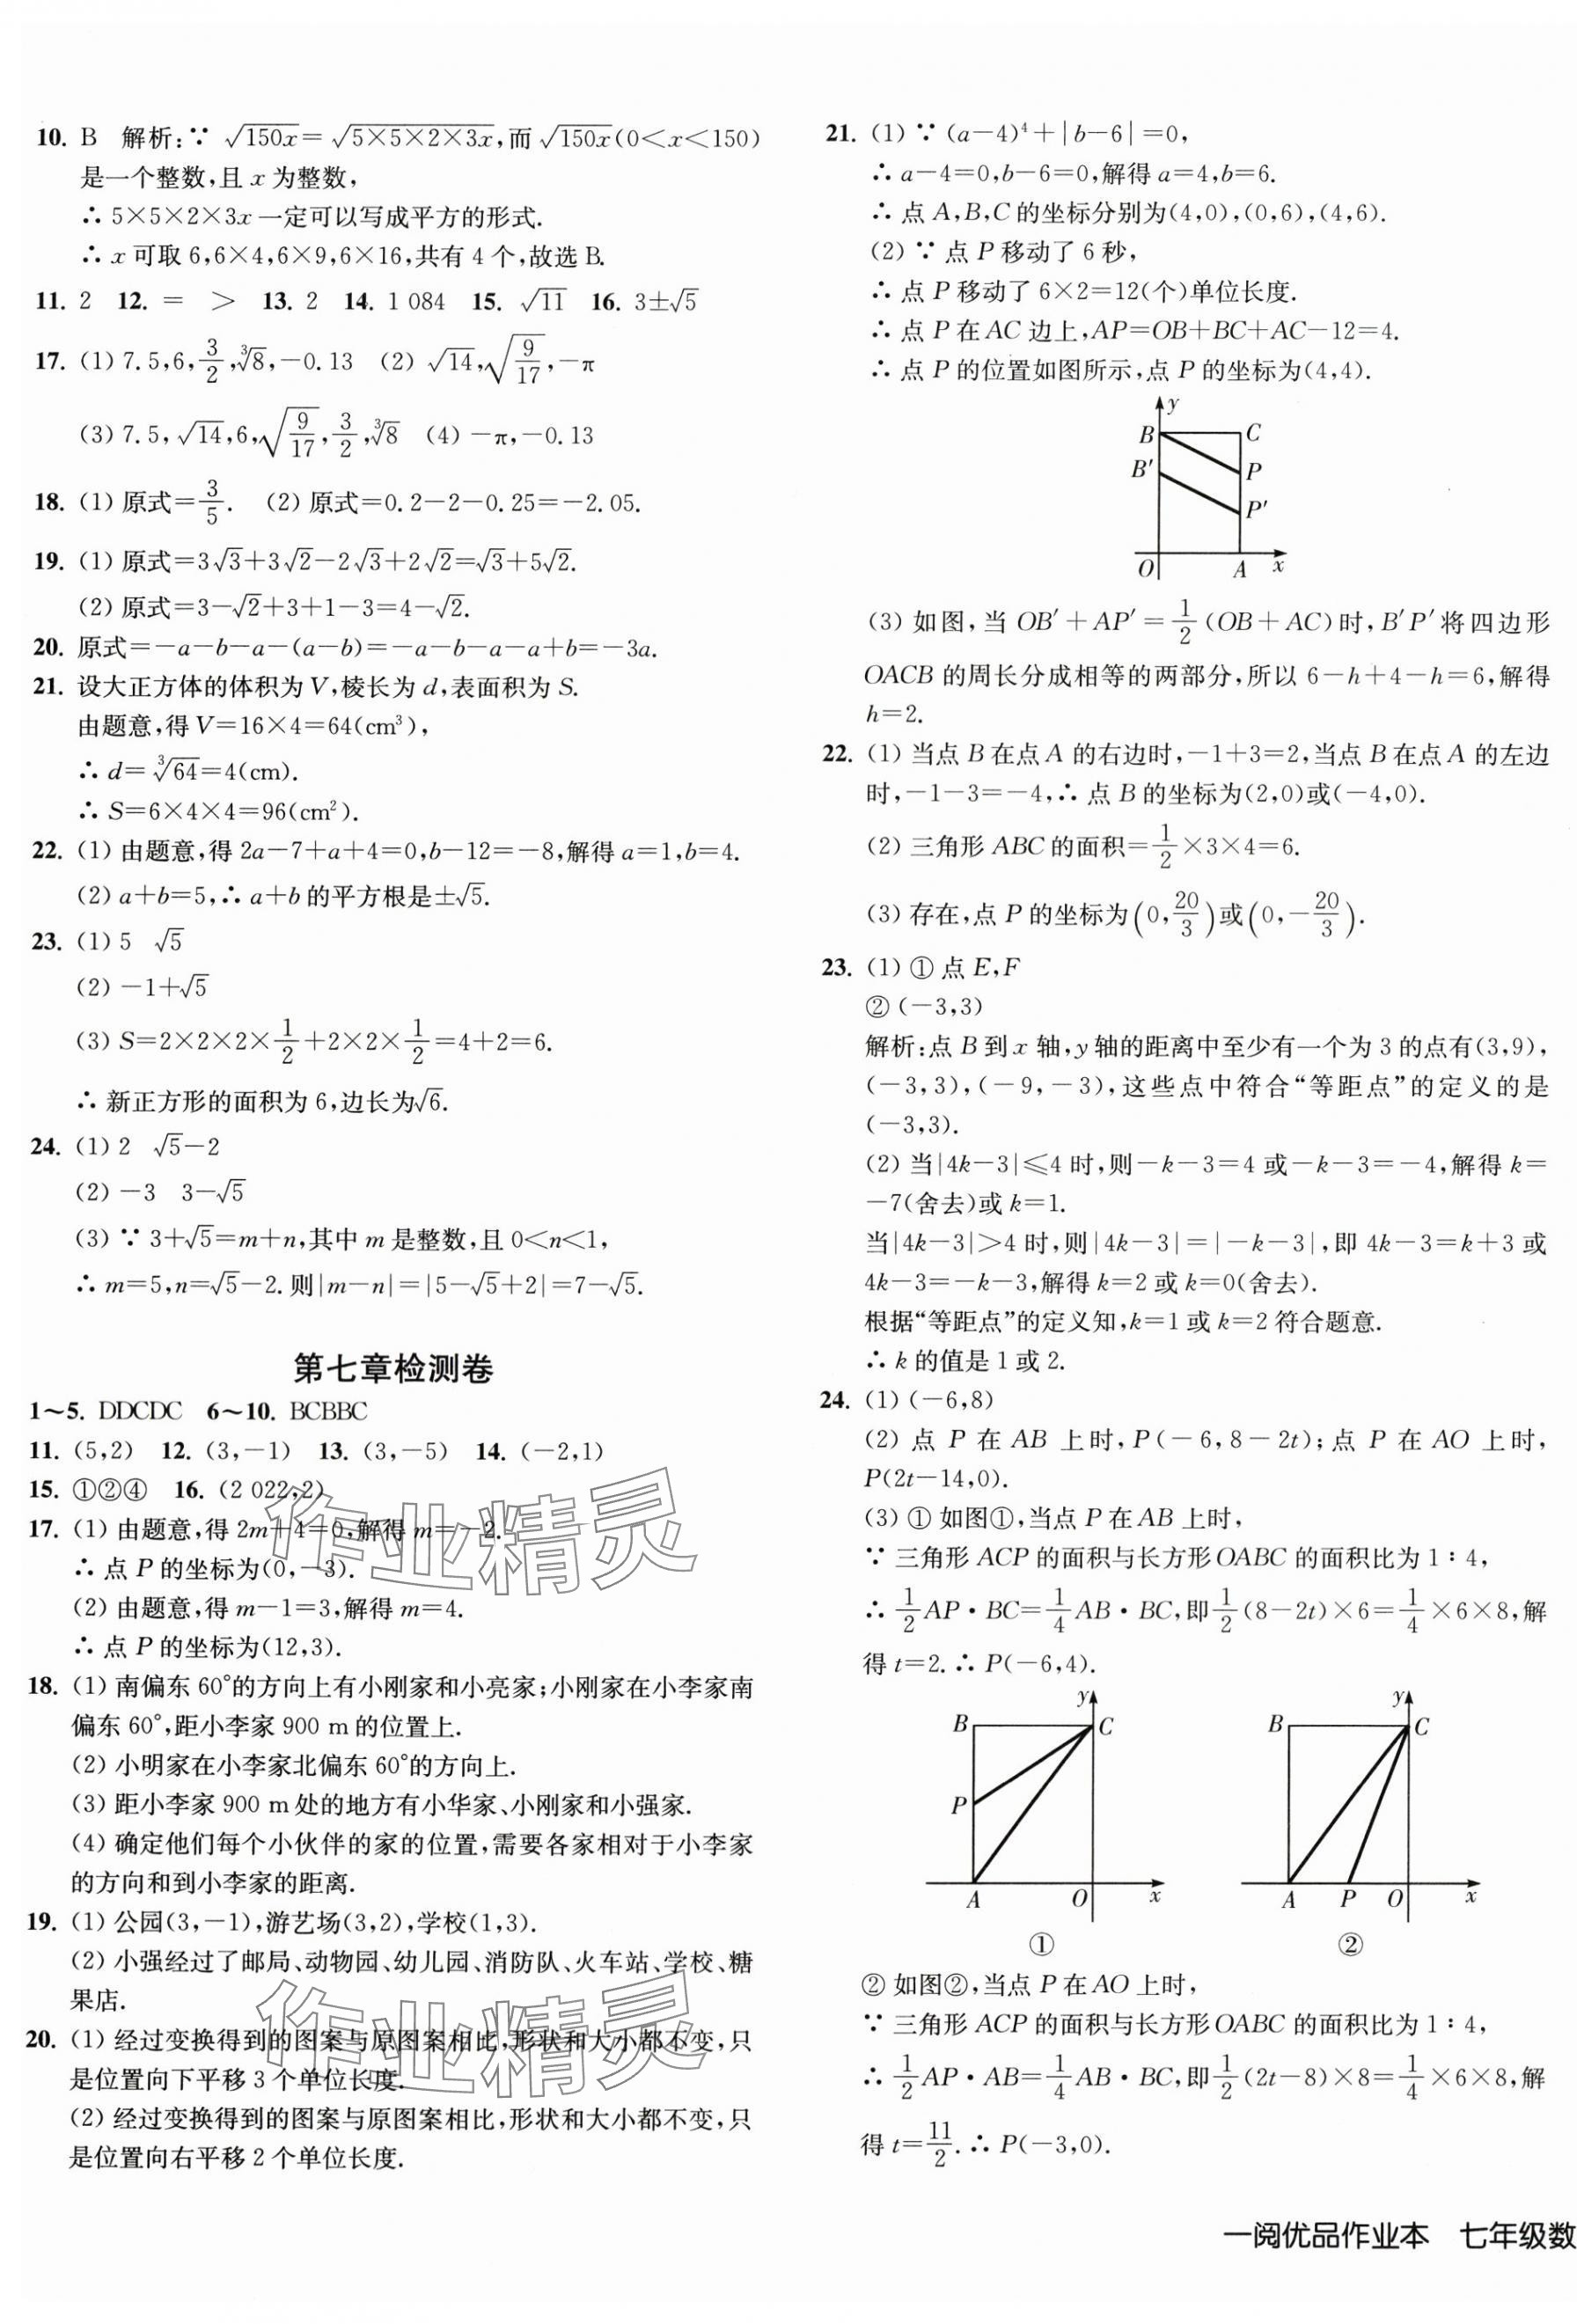 10. B 解析:∵ √150x=√5×5×2×3x,而√150x(0<x<150)
是一个整数,且 x 为整数,
∴ 5×5×2×3x 一定可以写成平方的形式.
∴ x 可取 6,6×4,6×9,6×16,共有 4 个,故选 B.
11. 2 12. = > 13. 2 14. 1 084 15. √11 16. 3±√5
17. (1) 7.5,6,3/2,∛8,-0.13 (2) √14,√(9/17),-π
(3) 7.5,√14,6,√(9/17),3/2,∛8 (4) -π,-0.13
18. (1) 原式=3/5. (2) 原式=0.2-2-0.25=-2.05.
19. (1) 原式=3√3+3√2-2√3+2√2=√3+5√2.
(2) 原式=3-√2+3+1-3=4-√2.
20. 原式=-a-b-a-(a-b)=-a-b-a-a+b=-3a.
21. 设大正方体的体积为 V,棱长为 d,表面积为 S.
由题意,得 V=16×4=64(cm³),
∴ d=∛64=4(cm).
∴ S=6×4×4=96(cm²).
22. (1) 由题意,得 2a-7+a+4=0,b-12=-8,解得 a=1,b=4.
(2) a+b=5,∴ a+b 的平方根是±√5.
23. (1) 5 √5
(2) -1+√5
(3) S=2×2×2×1/2+2×2×1/2=4+2=6.
∴ 新正方形的面积为 6,边长为√6.
24. (1) 2 √5-2
(2) -3 3-√5
(3) ∵ 3+√5=m+n,其中 m 是整数,且 0<n<1,
∴ m=5,n=√5-2.则|m-n|=|5-√5+2|=7-√5.
第七章检测卷
1~5. DDCDC 6~10. BCBBC
11. (5,2) 12. (3,-1) 13. (3,-5) 14. (-2,1)
15. ①②④ 16. (2 022,2)
17. (1) 由题意,得 2m+4=0,解得 m=-2.
∴ 点 P 的坐标为(0,-3).
(2) 由题意,得 m-1=3,解得 m=4.
∴ 点 P 的坐标为(12,3).
18. (1) 南偏东 60°的方向上有小刚家和小亮家;小刚家在小李家南
偏东 60°,距小李家 900 m 的位置上.
(2) 小明家在小李家北偏东 60°的方向上.
(3) 距小李家 900 m 处的地方有小华家、小刚家和小强家.
(4) 确定他们每个小伙伴的家的位置,需要各家相对于小李家
的方向和到小李家的距离.
19. (1) 公园(3,-1),游艺场(3,2),学校(1,3).
(2) 小强经过了邮局、动物园、幼儿园、消防队、火车站、学校、糖
果店.
20. (1) 经过变换得到的图案与原图案相比,形状和大小都不变,只
是位置向下平移 3 个单位长度.
(2) 经过变换得到的图案与原图案相比,形状和大小都不变,只
是位置向右平移 2 个单位长度.
作业精灵
作业精灵
21. (1) ∵ (a-4)⁴+|b-6|=0,
∴ a-4=0,b-6=0,解得 a=4,b=6.
∴ 点 A,B,C 的坐标分别为(4,0),(0,6),(4,6).
(2) ∵ 点 P 移动了 6 秒,
∴ 点 P 移动了 6×2=12(个)单位长度.
∴ 点 P 在 AC 边上,AP=OB+BC+AC-12=4.
∴ 点 P 的位置如图所示,点 P 的坐标为(4,4).
y
B C
B′ P
P′
O A x
(3) 如图,当 OB′+AP′=1/2(OB+AC)时,B′P′将四边形
OACB 的周长分成相等的两部分,所以 6-h+4-h=6,解得
h=2.
22. (1) 当点 B 在点 A 的右边时,-1+3=2,当点 B 在点 A 的左边
时,-1-3=-4,∴ 点 B 的坐标为(2,0)或(-4,0).
(2) 三角形 ABC 的面积=1/2×3×4=6.
(3) 存在,点 P 的坐标为(0,20/3)或(0,-20/3).
23. (1) ① 点 E,F
② (-3,3)
解析:点 B 到 x 轴,y 轴的距离中至少有一个为 3 的点有(3,9),
(-3,3),(-9,-3),这些点中符合“等距点”的定义的是
(-3,3).
(2) 当|4k-3|≤4 时,则-k-3=4 或-k-3=-4,解得 k=
-7(舍去)或 k=1.
当|4k-3|>4 时,则|4k-3|=|-k-3|,即 4k-3=k+3 或
4k-3=-k-3,解得 k=2 或 k=0(舍去).
根据“等距点”的定义知,k=1 或 k=2 符合题意.
∴ k 的值是 1 或 2.
24. (1) (-6,8)
(2) 点 P 在 AB 上时,P(-6,8-2t);点 P 在 AO 上时,
P(2t-14,0).
(3) ① 如图①,当点 P 在 AB 上时,
∵ 三角形 ACP 的面积与长方形 OABC 的面积比为 1∶4,
∴ 1/2AP·BC=1/4AB·BC,即1/2(8-2t)×6=1/4×6×8,解
得 t=2.∴ P(-6,4).
y y
B C B C
P
A O x A P O x
① ②
② 如图②,当点 P 在 AO 上时,
∵ 三角形 ACP 的面积与长方形 OABC 的面积比为 1∶4,
∴ 1/2AP·AB=1/4AB·BC,即1/2(2t-8)×8=1/4×6×8,解
得 t=11/2.∴ P(-3,0).
一阅优品作业本 七年级数